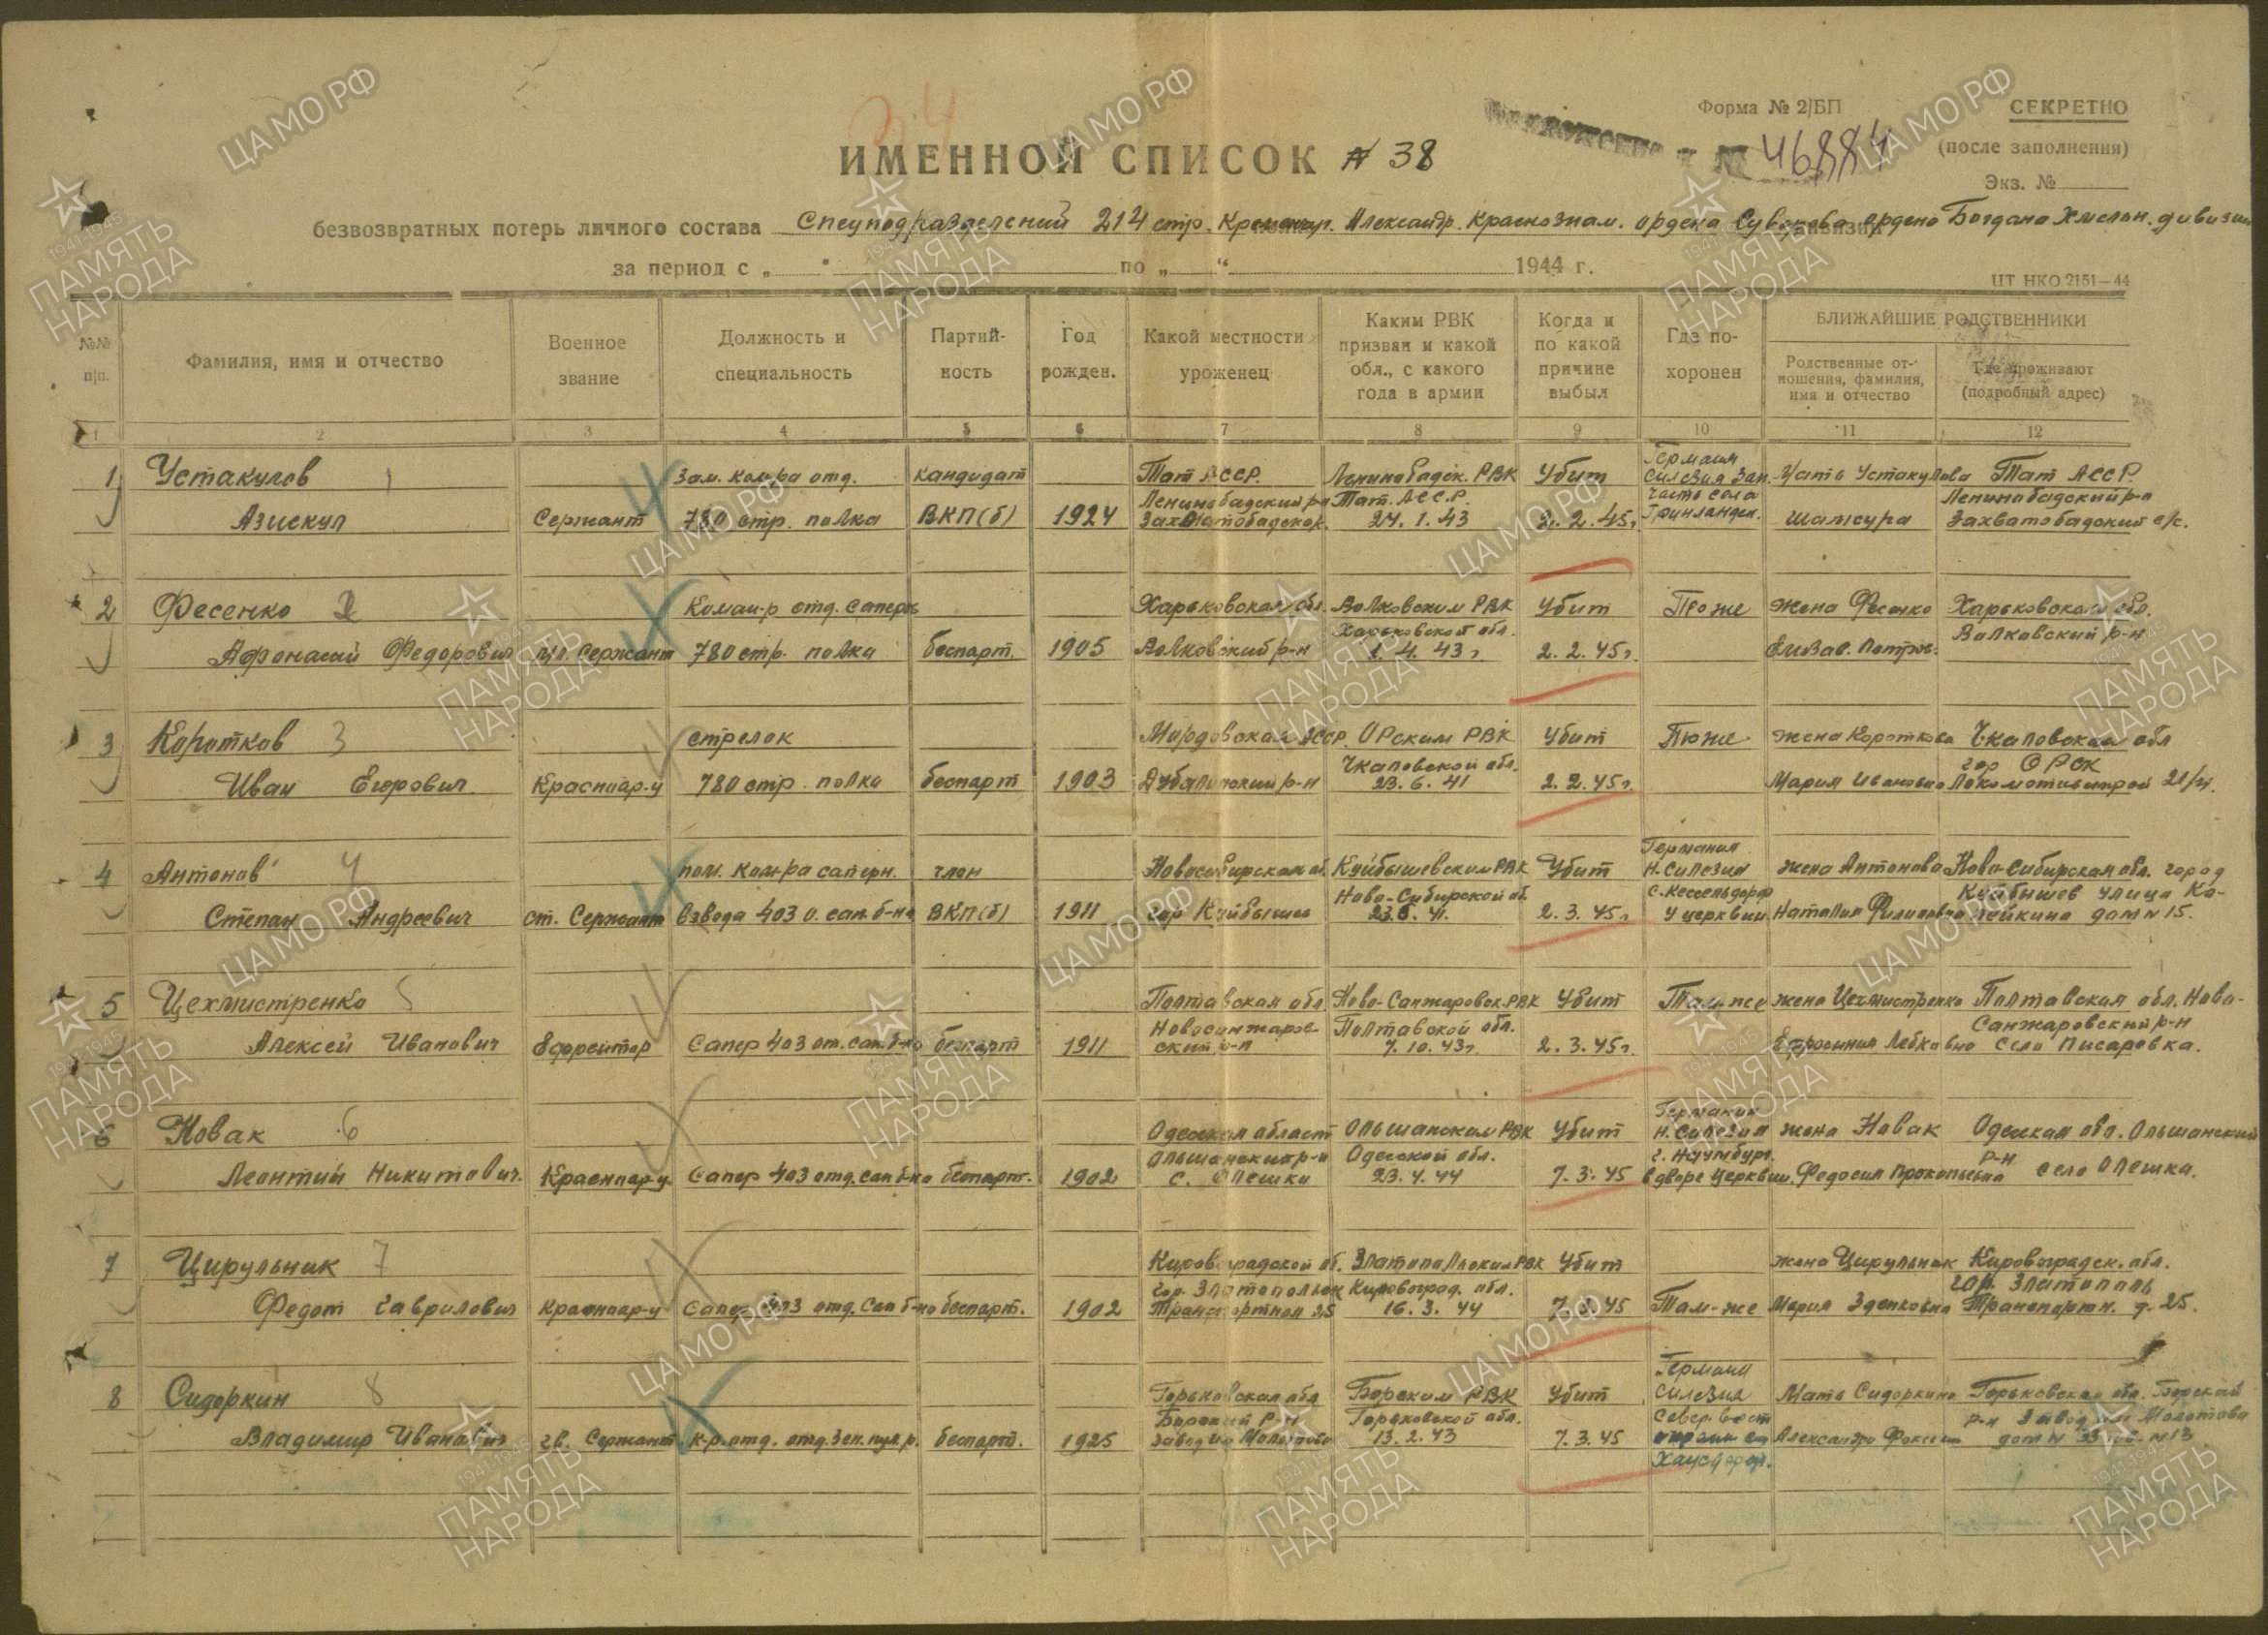 Форма № 2/БП
СЕКРЕТНО
(после заполнения)
Экз. №
№ 46884
ИМЕННОЙ СПИСОК № 38
безвозвратных потерь личного состава Спецподразделений 214 стр. Кременчуг. Александр. Краснознам. ордена Суворова ордена Богдана Хмельн. дивизии
за период с „ “ по „ “ 1944 г.
ЦТ НКО 2151—44
№№ п/п.
Фамилия, имя и отчество
Военное звание
Должность и специальность
Партийность
Год рожден.
Какой местности уроженец
Каким РВК призван и какой обл., с какого года в армии
Когда и по какой причине выбыл
Где похоронен
БЛИЖАЙШИЕ РОДСТВЕННИКИ
Родственные отношения, фамилия, имя и отчество
Где проживают (подробный адрес)
1 2 3 4 5 6 7 8 9 10 11 12
1 Устакулов 1 Зам. ком-ра отд. кандидат Тат АССР. Ленинабадск. РВК Убит Германия Силезия Зап. Мать Устакулова Тат АССР.
Ленинабадский р-н Тат. АССР. часть села Ленинабадский р-н
Азискул Сержант 780 стр. полка ВКП(б) 1924 24.1.43 2.2.45г Шамсура Захватабадский с/с.
2 Фесенко 2 Коман-р отд. саперн Харьковская обл. Волковским РВК Убит Тоже жена Фесенко Харьковская обл.
Харьковской обл. Валковский р-н
Афонасий Федорович мл. Сержант 780 стр. полка беспарт. 1905 Волковский р-н 1.4.43г 2.2.45г. Елизав. Петров.
3 Коротков 3 стрелок Мордовская АССР. ОРским РВК Убит Тоже жена Короткова Чкаловская обл
Чкаловской обл. гор ОРСК
Иван Егорович Красноар-ц 780 стр. полка беспарт 1903 р-н 23.6.41 2.2.45г. Мария Ивановна Локомотивстрой 21/4.
4 Антонов 4 пом. ком-ра саперн. член Новосибирская об. Куйбышевским РВК Убит Германия Н. Силезия жена Антонова Ново-Сибирская обл. город
Ново-Сибирской об. с. Кессельдорф Куйбышев улица Ка-
Степан Андреевич ст. Сержант взвода 403 о. сап. б-на ВКП(б) 1911 гор Куйбышев 23.6.41. 2.3.45г У церквии. Наталия Филиповна лейкина дом № 15.
5 Цехмистренко 5 Полтавская обл Ново-Санжаровск. РВК Убит Там-же жена Цехмистренко Полтавская обл. Ново-
Новосанжаров- Полтавской обл. Санжаровский р-н
Алексей Иванович Ефрейтор Сапер 403 от. сап. б-на беспарт 1911 ский р-н 7.10.43г. 2.3.45г. село Писаровка.
6 Новак 6 Одесская област Ольшанским РВК Убит Германия Н. Силезия жена Новак Одесская обл. Ольшанский
Ольшанский р-н Одесской обл. г. Наумбург. р-н
Леонтий Никитович. Красноар-ц Сапер 403 отд. сап б-на беспарт. 1902 с. Олешки 23.4.44 7.3.45 в дворе церквии. Федосия Прокопьевна село Олешка.
7 Цирульник 7 Кировоградской об. Златопольским РВК Убит жена Цирульник Кировоградск. обл.
гор. Златополь Кировоград. обл. гор. Златополь
Федот Гаврилович Красноар-ц Сапер 403 отд. сап б-на беспарт. 1902 Транспортная 25 16.3.44 7.3.45 Там-же Мария Транспортн. д. 25.
8 Сидоркин 8 Горьковская обл Борским РВК Убит Германия Силезия Мать Сидоркина Горьковская обл. Борский
Борский р-н Горьковской обл. Север. вост р-н завод им Молотова
Владимир Иванович гв. Сержант к-р. отд. отд. зен. пул. р. беспарт. 1925 завод им Молотова 13.2.43 7.3.45 Александра дом №
Хаусдорф.